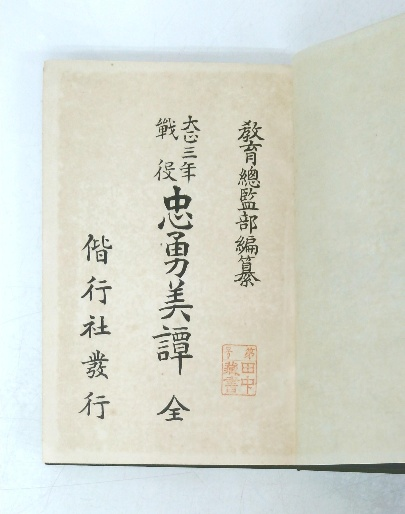 教育總監部編纂
大正三年
戰役
忠勇美譚 全
偕行社發行